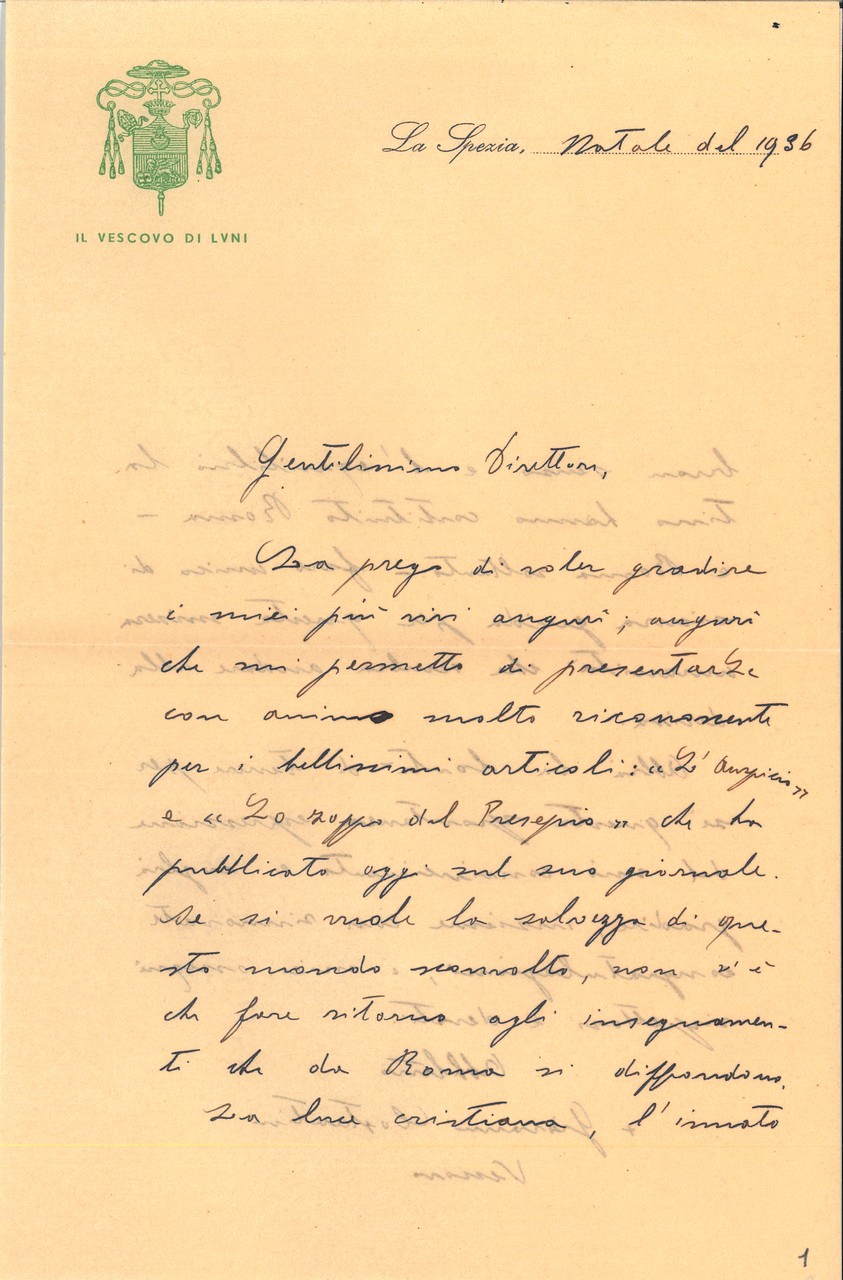 La Spezia, Natale del 1936
IL VESCOVO DI LVNI
Gentilissimo Direttore,
La prego di voler gradire
i miei più vivi auguri; auguri
che mi permetto di presentarLe
con animo molto riconoscente
per i bellissimi articoli: « L'Auspicio »
e « Lo zoppo del Presepio » che ha
pubblicato oggi sul suo giornale.
Se si vuole la salvezza di que-
sto mondo sconvolto, non v'è
che fare ritorno agli insegnamen-
ti che da Roma si diffondono.
La luce cristiana, l'innato
1